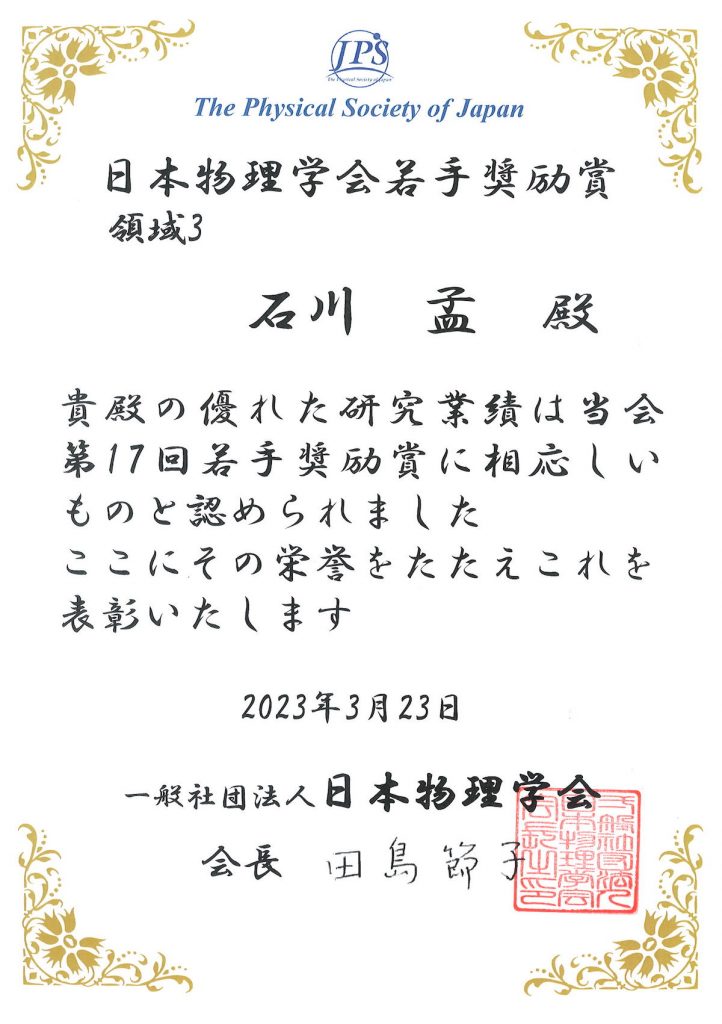 JPS
The Physical Society of Japan
The Physical Society of Japan
日本物理学会若手奨励賞
領域3
石川 孟 殿
貴殿の優れた研究業績は当会
第17回若手奨励賞に相応しい
ものと認められました
ここにその栄誉をたたえこれを
表彰いたします
2023年3月23日
一般社団法人日本物理学会
会長 田島節子
一般社団法人
日本物理学会
会長之印